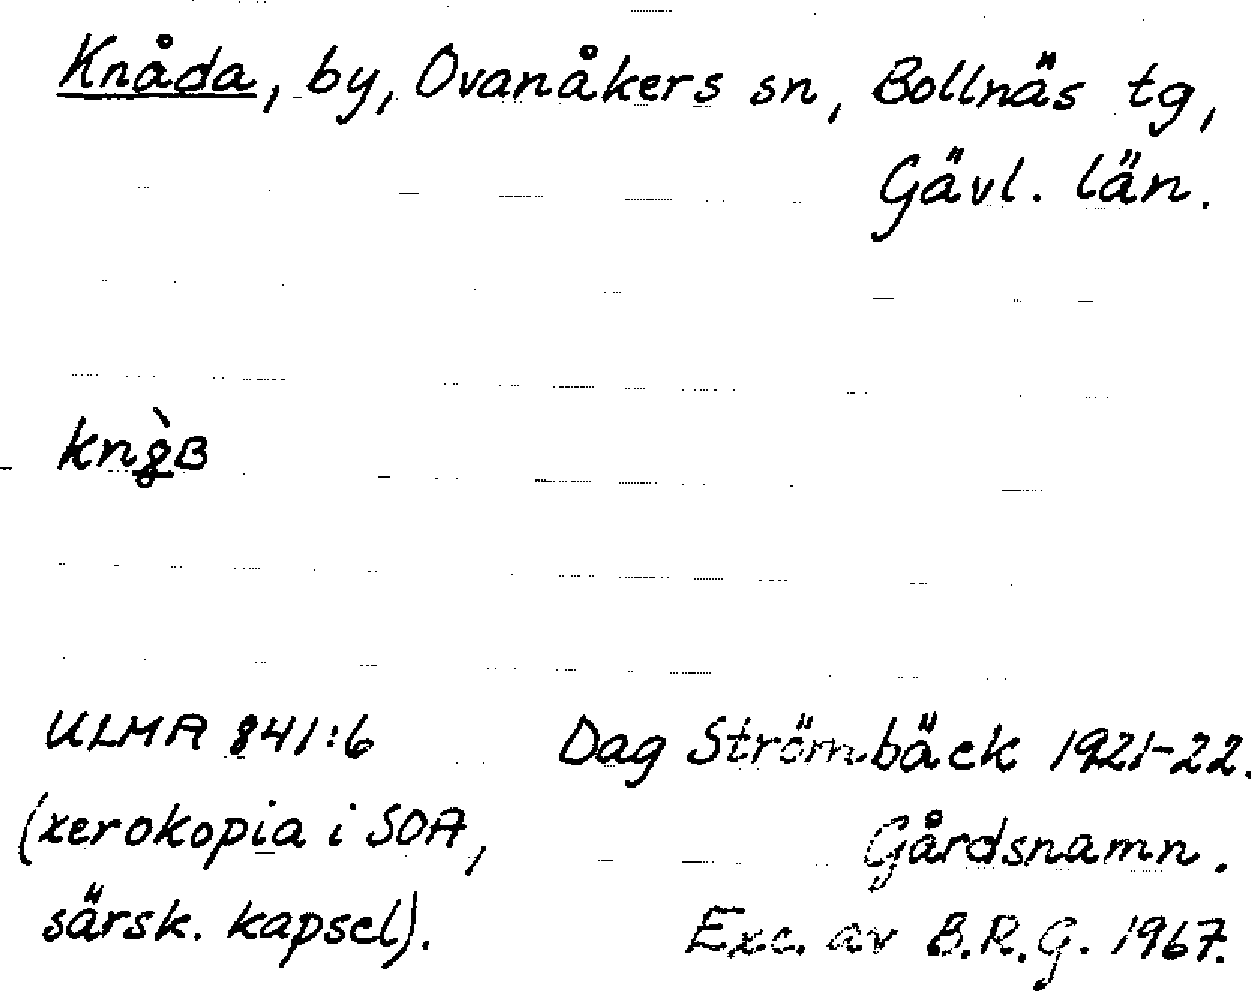 Knåda, by, Ovanåkers sn, Bollnäs tg,
Gävl. län.
ULMA 841:6
Dag Strömbäck 1921-22.
(xerokopia i SOA,
Gårdsnamn.
särsk. kapsel).
Exc. av B.R.G. 1967.